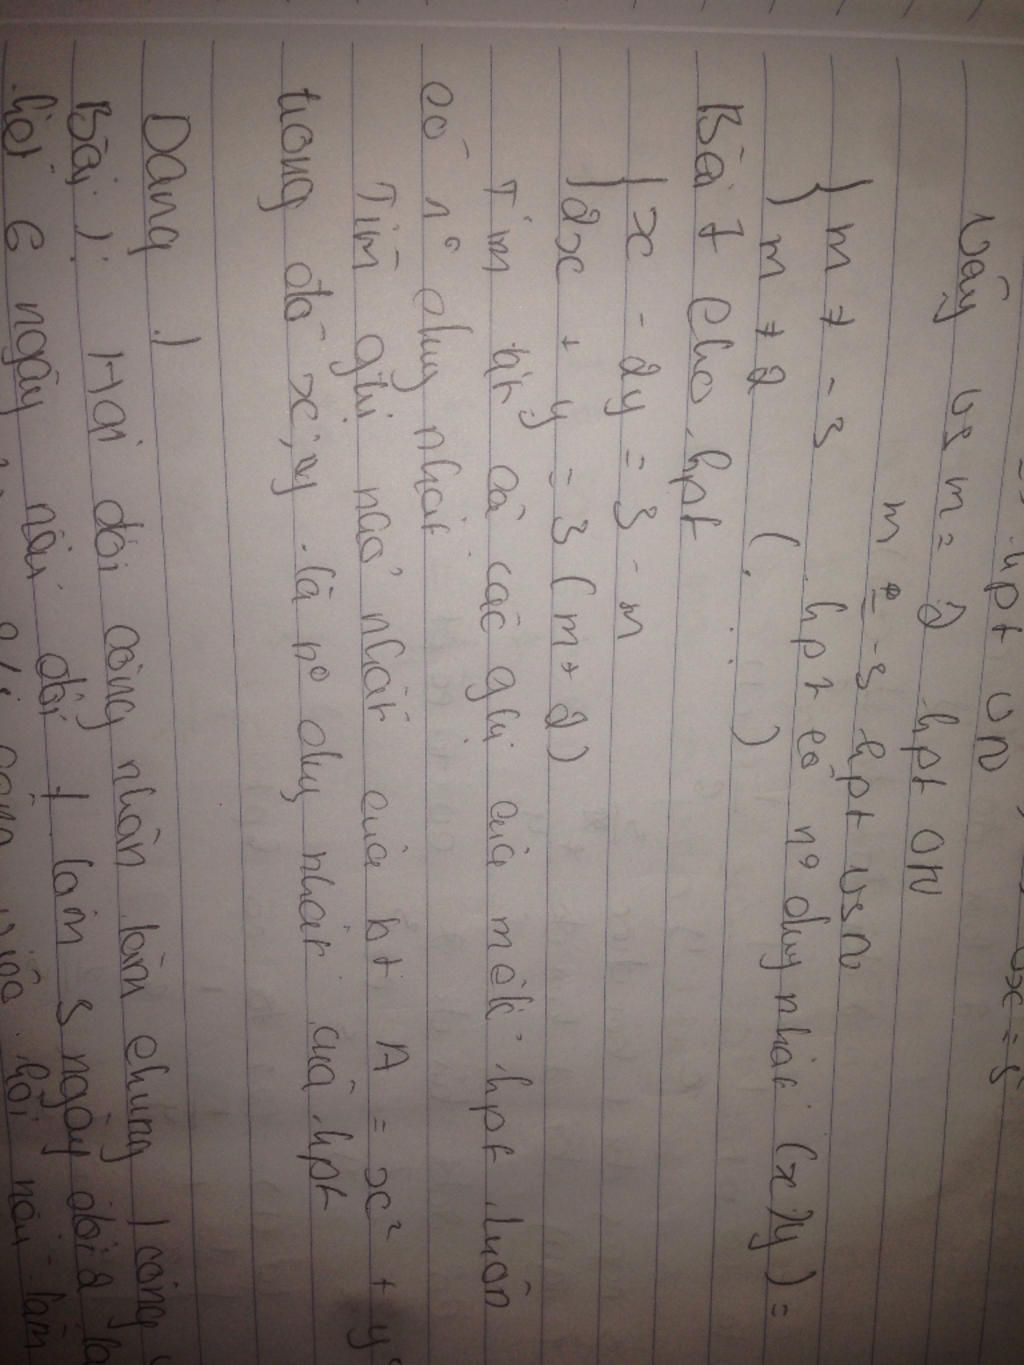 hpt VN
Vậy vs m = 2 hpt VN
m = -3 hpt vsn
{ m ≠ -3 hpt có n° duy nhất (x;y) =
{ m ≠ 2 ( ; )
Bài 7 Cho hpt
{ x - 2y = 3 - m
{ 2x + y = 3 (m + 2)
Tìm tất cả các gtrị của m để hpt luôn
có n° duy nhất
Tìm gtrị nhỏ nhất của bt A = x² + y²
trong đó x, y là n° duy nhất của hpt
Dạng 1
Bài 1: Hai đội công nhân làm chung 1 công
hết 6 ngày nếu đội 1 làm 3 ngày đội 2 là